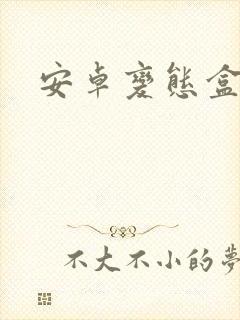 安卓變態盒
不大不小的夢